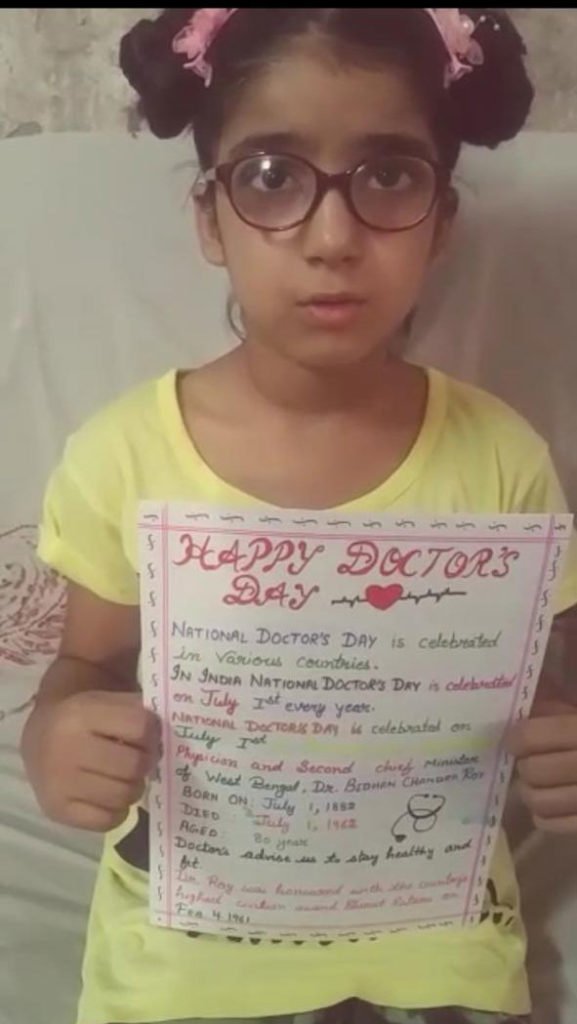 HAPPY DOCTOR'S
DAY
NATIONAL DOCTOR'S DAY is celebrated
in various countries.
IN INDIA NATIONAL DOCTOR'S DAY is celebrated
on July 1st every year.
NATIONAL DOCTOR'S DAY is celebrated on
July 1st
Physician and Second chief Minister
of West Bengal, Dr. BIDHAN CHANDRA ROY
BORN ON: July 1, 1882
DIED: July 1, 1962
AGED: 80 years
Doctor's advise us to stay healthy and
fit.
Dr. Roy was honoured with the country's
highest civilian award Bharat Ratna on
FEB. 4, 1961